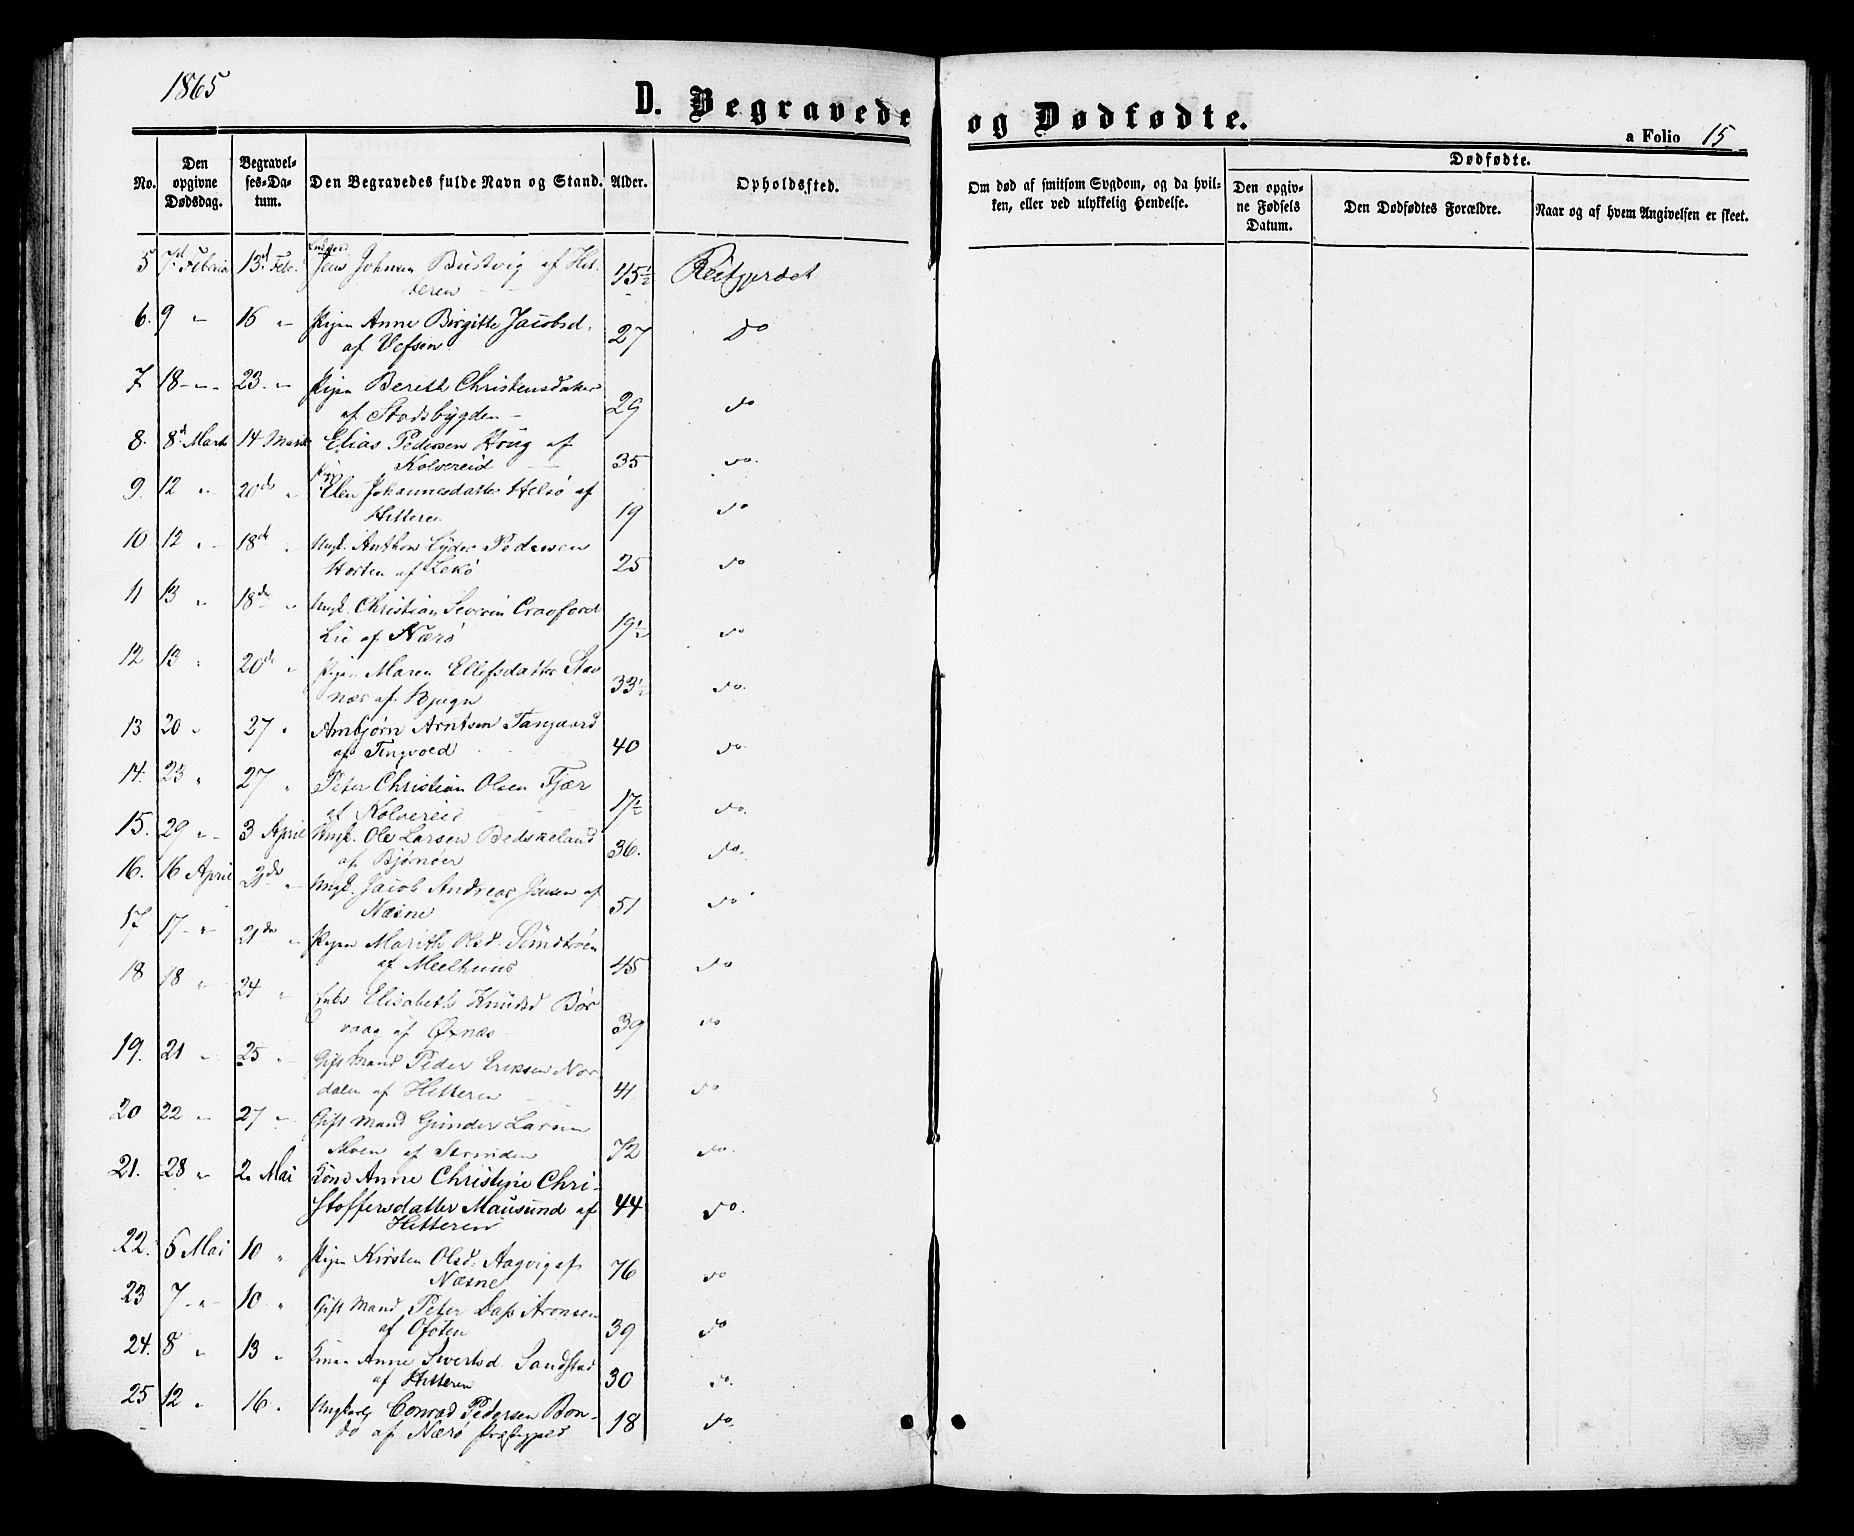 1865
D. Begravede og Dødfødte.
a Folio 15
No.
Den opgivne Dødsdag.
Begravelses-Datum.
Den Begravedes fulde Navn og Stand.
Alder.
Opholdssted.
Om død af smitsom Sygdom, og da hvilken, eller ved ulykkelig Hendelse.
Dødfødte.
Den opgivne Fødsels Datum.
Den Dødfødtes Forældre.
Naar og af hvem Angivelsen er skeet.
5 7de Februar 13de Febr. Jens Johnsen Bustvig af Hit-
teren 45½ Reitgjerdet
6. 9 " 16 " Pigen Anne Birgitte Jacobsd.
af Vefsen 27 Do
7 18 " 23 " Pigen Bereth Christensdatter
af Stadsbygden 29 do
8. 8de Marts 14 Marts Elias Pedersen Houg af
Kolvereid 35 do.
9. 12 " 20de " Pige Elen Johannesdatter Helsø af
Hitteren 19 do
10 12 " 18de " Ungk. Anthon Pedersen
Horten af Lekø 25 do
11 13 " 18de " Ungk. Christian Severin Crawford
Lie af Nærø 19½ do
12 13 " 20de " Pigen Maren Ellefsdatter Stav
nær af Bjugn 33½ do.
13 20 " 27 " Arnbjørn Arntsen Tangaard
af Tingvold 40 do.
14. 23 " 27 " Peter Christian Olsen Fjær
af Kolvereid 17½ do.
15. 29 " 3 April Ungk. Ole Larsen Bedskeland
af Bjørnøer 36. do.
16. 16 April " Ungk. Jacob Andreas Jensen af
Næsne 51 do
17 17 " 21de " Pigen Marith Olsd.
af Meelhuus 45 do
18 18 " 24 " Enke Elisabeth Knudsd Bør
vaag af Øxnæs 39 do
19. 21 " 25 " Gift Mand Peder Eriksen Nor
dalen af Hitteren 41 do
20 22 " 27 " Gift Mand Gunder Larsen
Moen af Strinden 72 do.
21. 28 " 2. Mai Kone Anne Christine Chri-
stoffersdatter Mausund af 44 do.
Hitteren
22. 5 Mai 10 " Pigen Kirsten Olsd. Aagvig af
Næsne 76 do
23 7 " 10 " Gift Mand Peter Dass Aronsen
af Ofoten 39 do
24. 8 " 13 " Kone Anne Sivertsd. Sandstad
af Hitteren 30 do.
25 12 " 16 " Ungkarl Conrad Pedersen Bon-
dø af Nærø Præstegjeld 18 do.